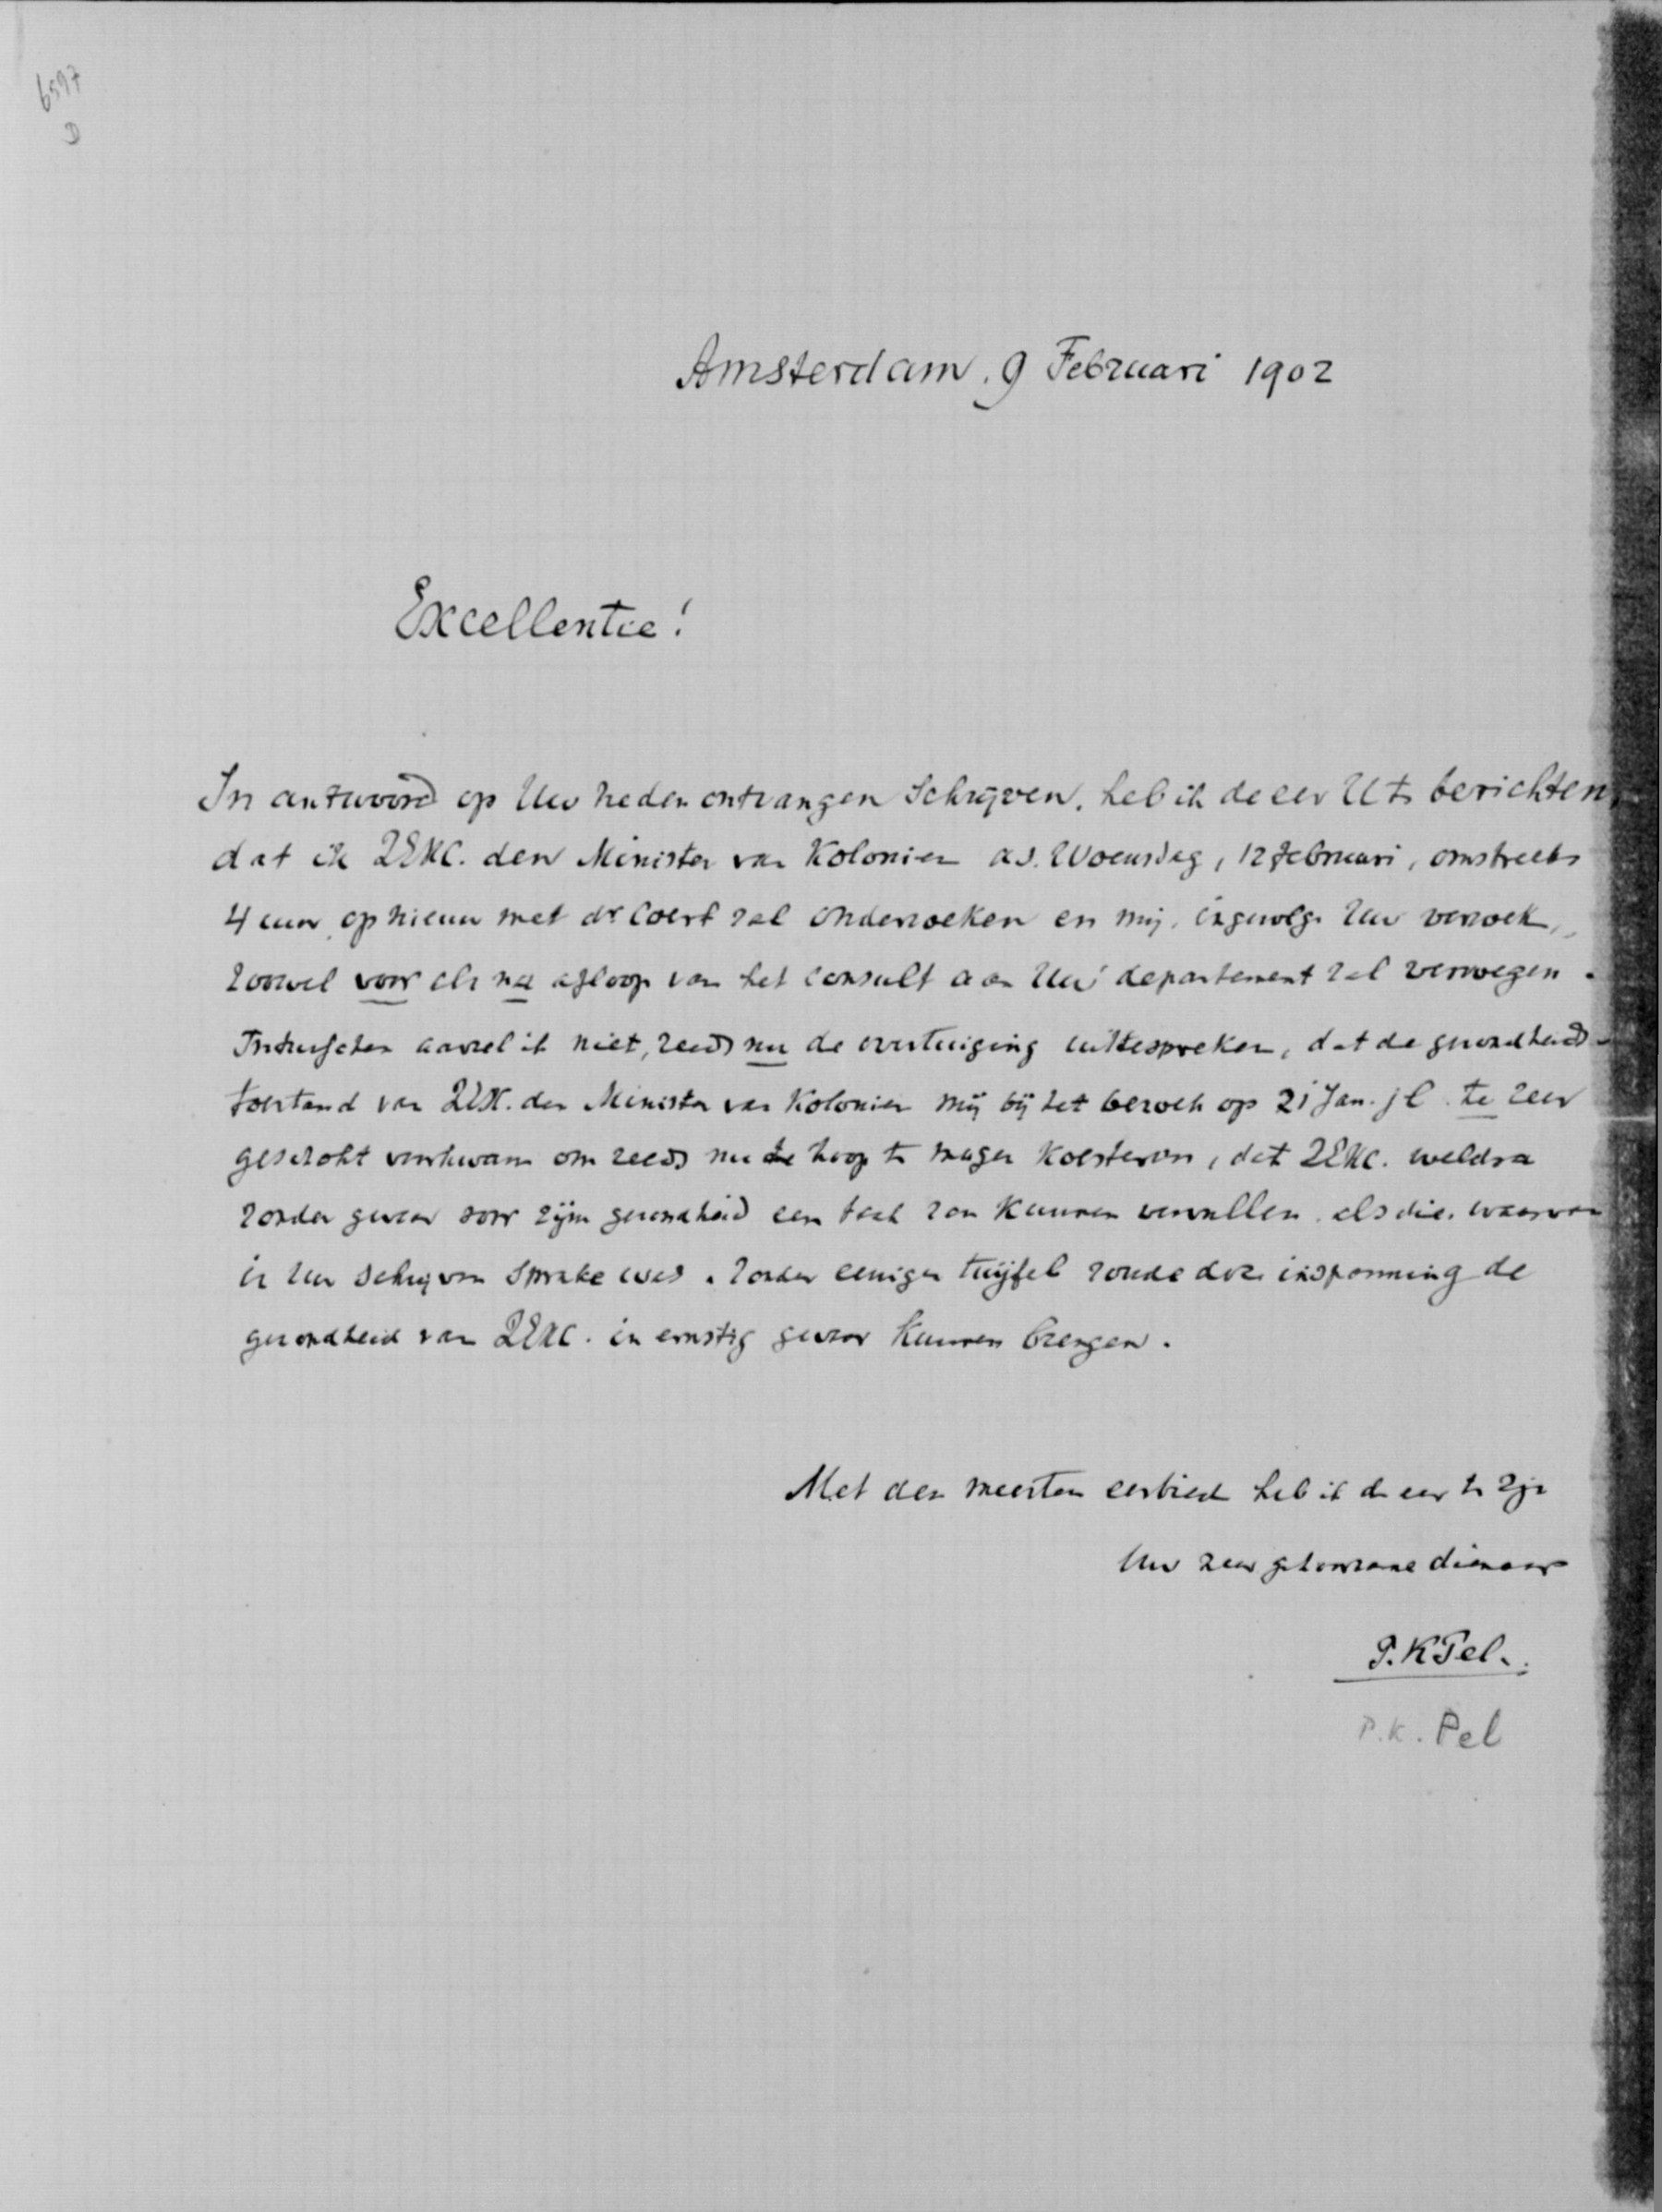 6597
D
Amsterdam, 9 Februari 1902
Excellentie!
In antwoord op Uw heden ontvangen Schrijven, heb ik de eer U te berichten,
dat ik ZExc. den Minister van Kolonien a.s. Woensdag, 12 februari, omstreeks
4 uur, op nieuw met dr Coert zal onderzoeken en mij, ingevolge Uw verzoek,
zoowel voor als na afloop van het consult aan Uw departement zal vervoegen.
Intusschen aarzel ik niet, reeds nu de overtuiging uittespreken, dat de gezondheids-
toestand van ZExc. den Minister van Kolonien mij bij het bezoek op 21 Jan. jl. te zeer
geschokt voorkwam om reeds nu de hoop te mogen koesteren, dat ZExc. weldra
zonder gevaar voor zijn gezondheid een taak zou kunnen vervullen als die, waarvan
in Uw schrijven sprake was. Zonder eenigen twijfel zoude deze inspanning de
gezondheid van ZExc. in ernstig gevaar kunnen brengen.
Met den meesten eerbied heb ik de eer te zijn
Uw zeer gehoorzame dienaar
P.K Pel.
P.K. Pel